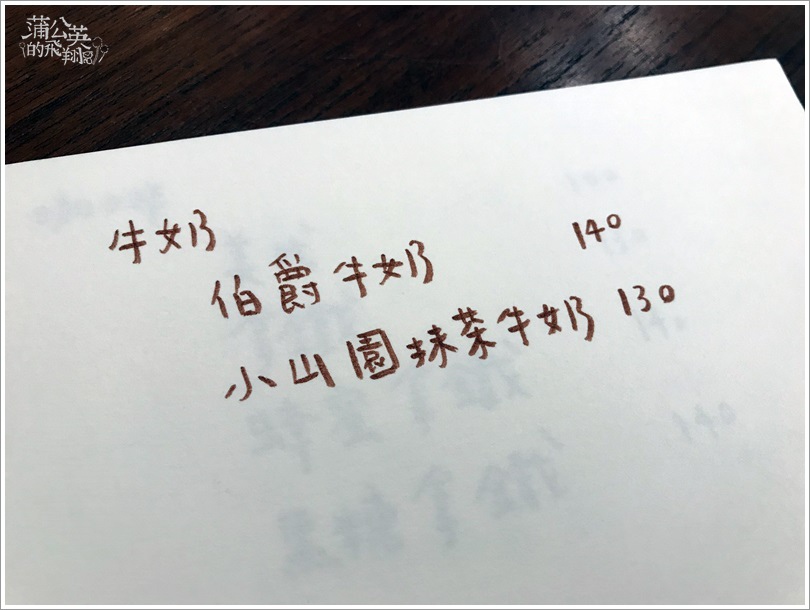 蒲公英
的飛翔
牛奶
伯爵牛奶 140
小山園抹茶牛奶 130